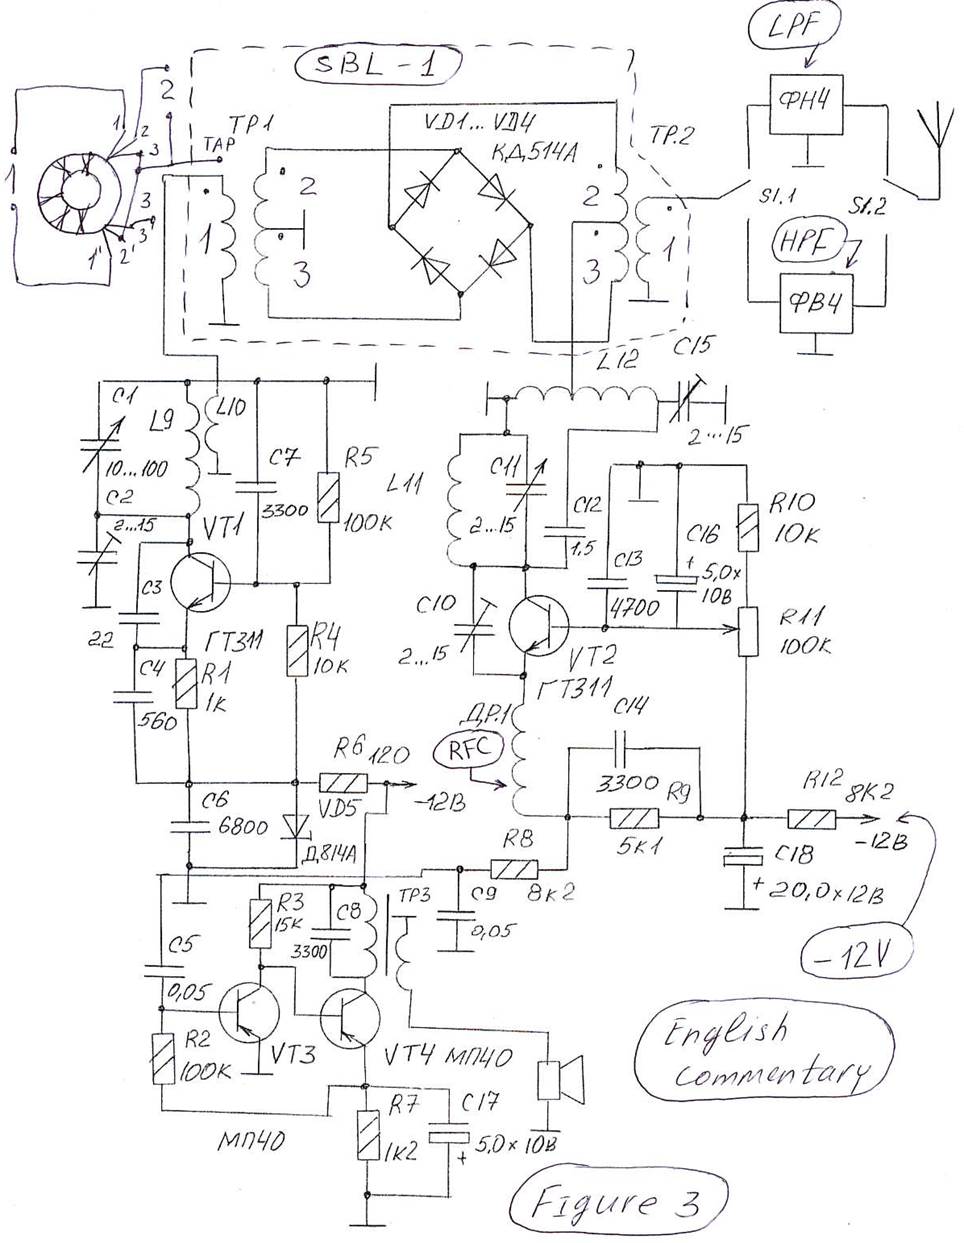 LPF
SBL-1
ФНЧ
2
1
2
3
TAP
TP1
VD1...VD4
КД514А
TP.2
1
3
3'
2'
1''
1
2
3
2
3
1
S1.1
S1.2
HPF
ФВЧ
C15
2...15
L12
C1
10...100
L9
L10
C2
2...15
VT1
C7
3300
R5
100К
L11
C11
2...15
C12
1,5
C13
4700
C16
+ 5,0х
10В
R10
10К
C3
22
ГТ311
R4
10К
C10
2...15
VT2
ГТ311
R11
100К
C4
560
R1
1К
ДР.1
RFC
C14
3300
R6 120
-12В
VD5
Д814А
C6
6800
R9
5К1
R12 8К2
-12В
R8
8К2
C18
+ 20,0х12В
-12V
R3
15К
C8
3300
TP3
C9
0,05
C5
0,05
R2
100К
VT3
VT4 МП40
МП40
R7
1К2
C17
+ 5,0х10В
English
commentary
Figure 3